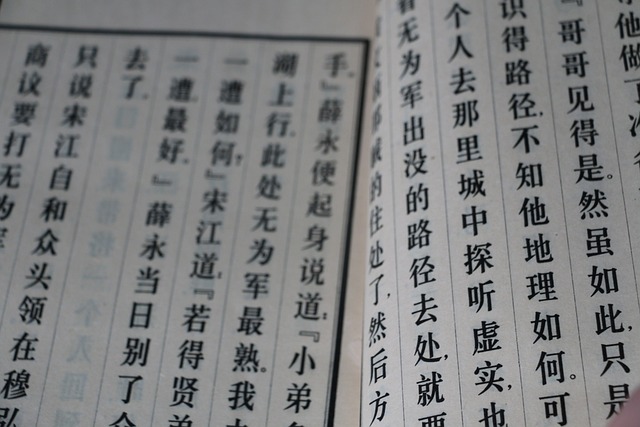 他做
『哥哥见得是。然虽如此，只是
识得路径，不知他地理如何。可
个人去那里城中探听虚实，也
看无为军出没的路径去处，就要
的住处了，然后方
手。』薛永便起身说道：『小弟多
湖上行。此处无为军最熟。我去
一遭如何？』宋江道：『若得贤弟
一遭最好。』薛永当日别了众
去了。
只说宋江自和众头领在穆弘
商议要打无为军